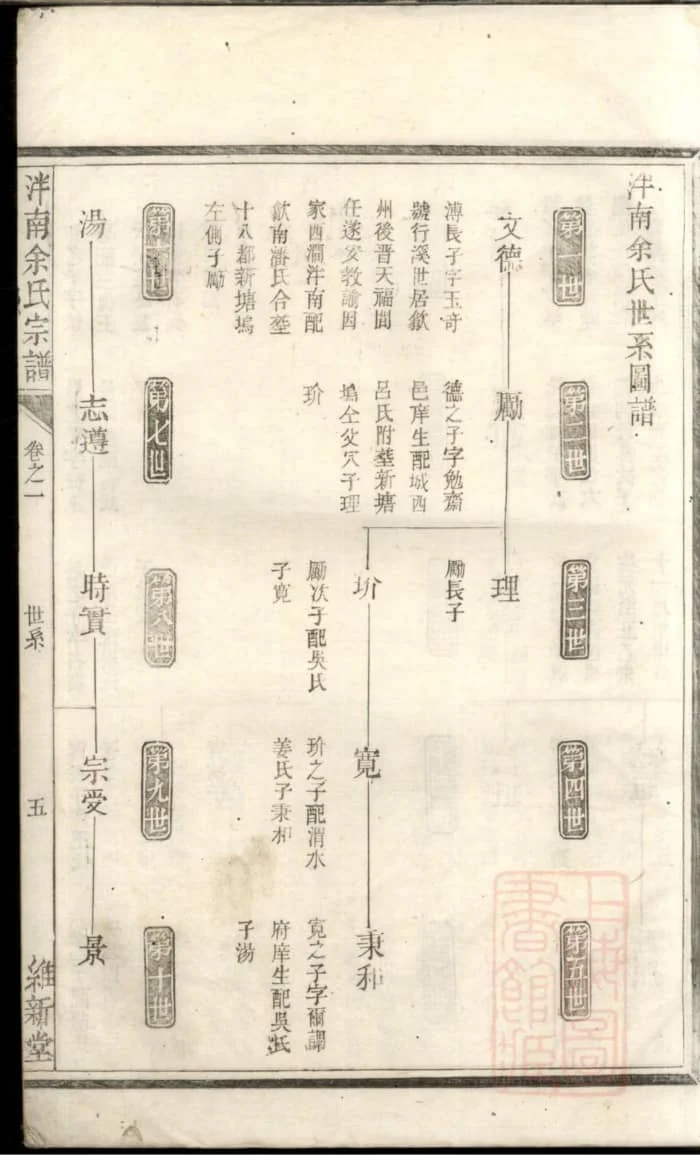 泮南余氏世系圖譜
第一世
第二世
第三世
第四世
第五世
文德
溥長子字玉奇
號行溪世居歙
州後晋天福間
任遂安教諭因
家西澗泮南配
歙南潘氏合塟
十八都新塘塢
左側子勵
勵
德之子字勉齋
邑庠生配城西
呂氏附塟新塘
塢仝父穴子理
玠
理
勵長子
玠
勵次子配吳氏
子寬
寬
玠之子配渭水
姜氏子秉和
秉和
寬之子字爾謙
府庠生配吳氏
子湯
第六世
第七世
第八世
第九世
第十世
湯
志遵
時實
宗受
景
泮南余氏宗譜
卷之一
世系
五
維新堂
上海圖
書館藏